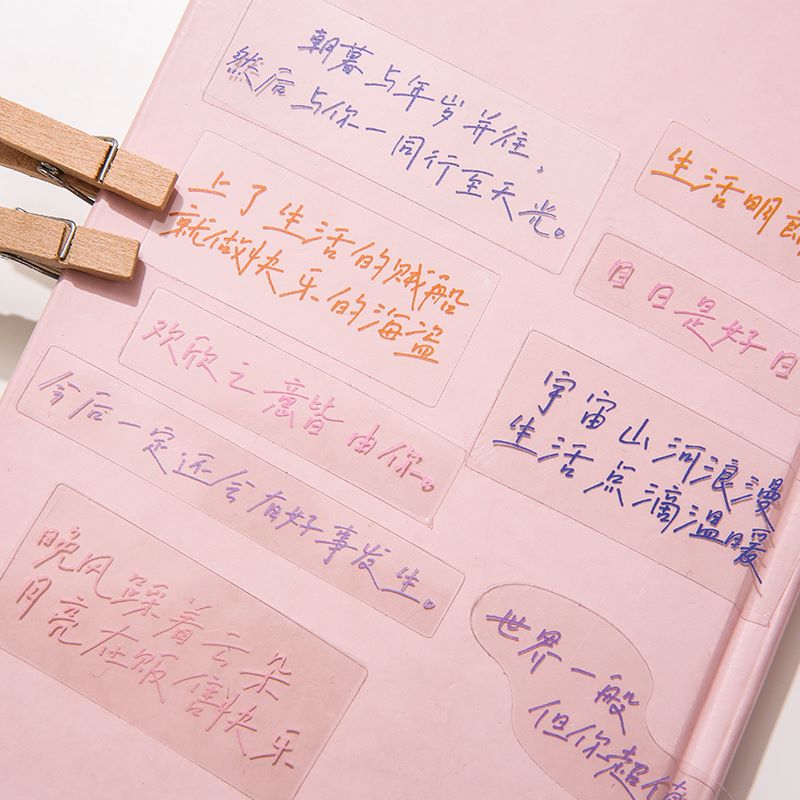 朝暮与年岁并往，
然后与你一同行至天光。
上了生活的贼船
就做快乐的海盗
欢欣之意皆由你。
今后一定还会有好事发生。
晚风踩着云朵
月亮在贩售快乐
生活明朗
日日是好日
宇宙山河浪漫
生活点滴温暖
世界一般
但你超值